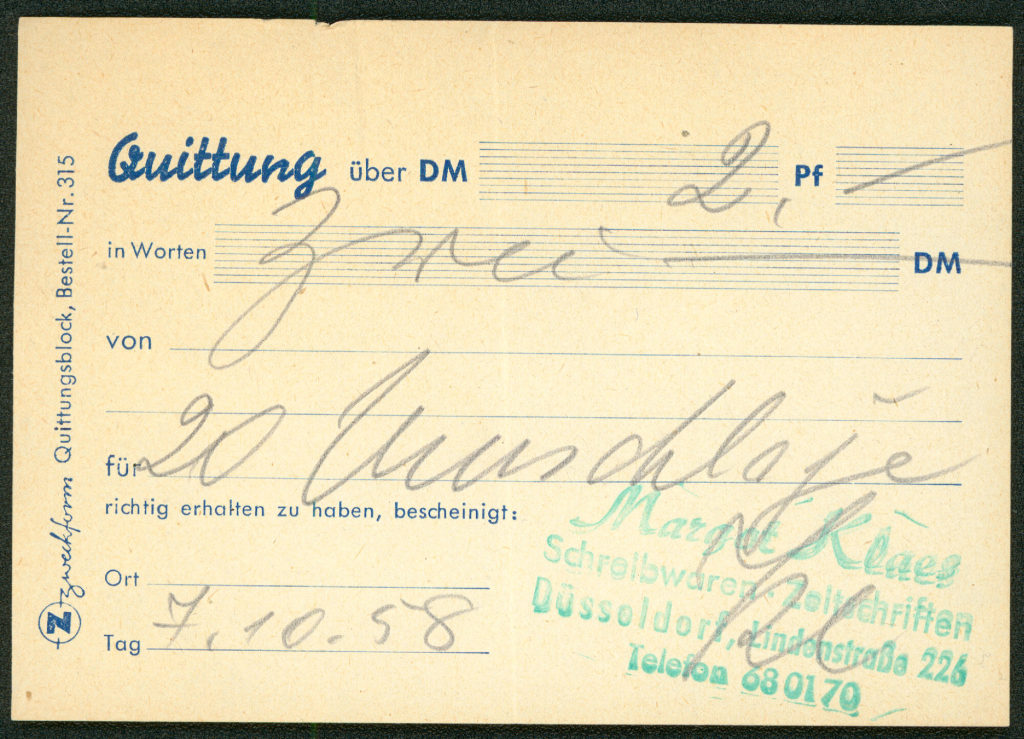 Quittung über DM 2,- Pf
in Worten zwei DM
von
für 20 Umschläge
richtig erhalten zu haben, bescheinigt:
Margot Klaes
Schreibwaren · Zeitschriften
Düsseldorf, Lindenstraße 226
Telefon 680170
Ort
Tag 7.10.58
Z zweckform Quittungsblock, Bestell-Nr. 315